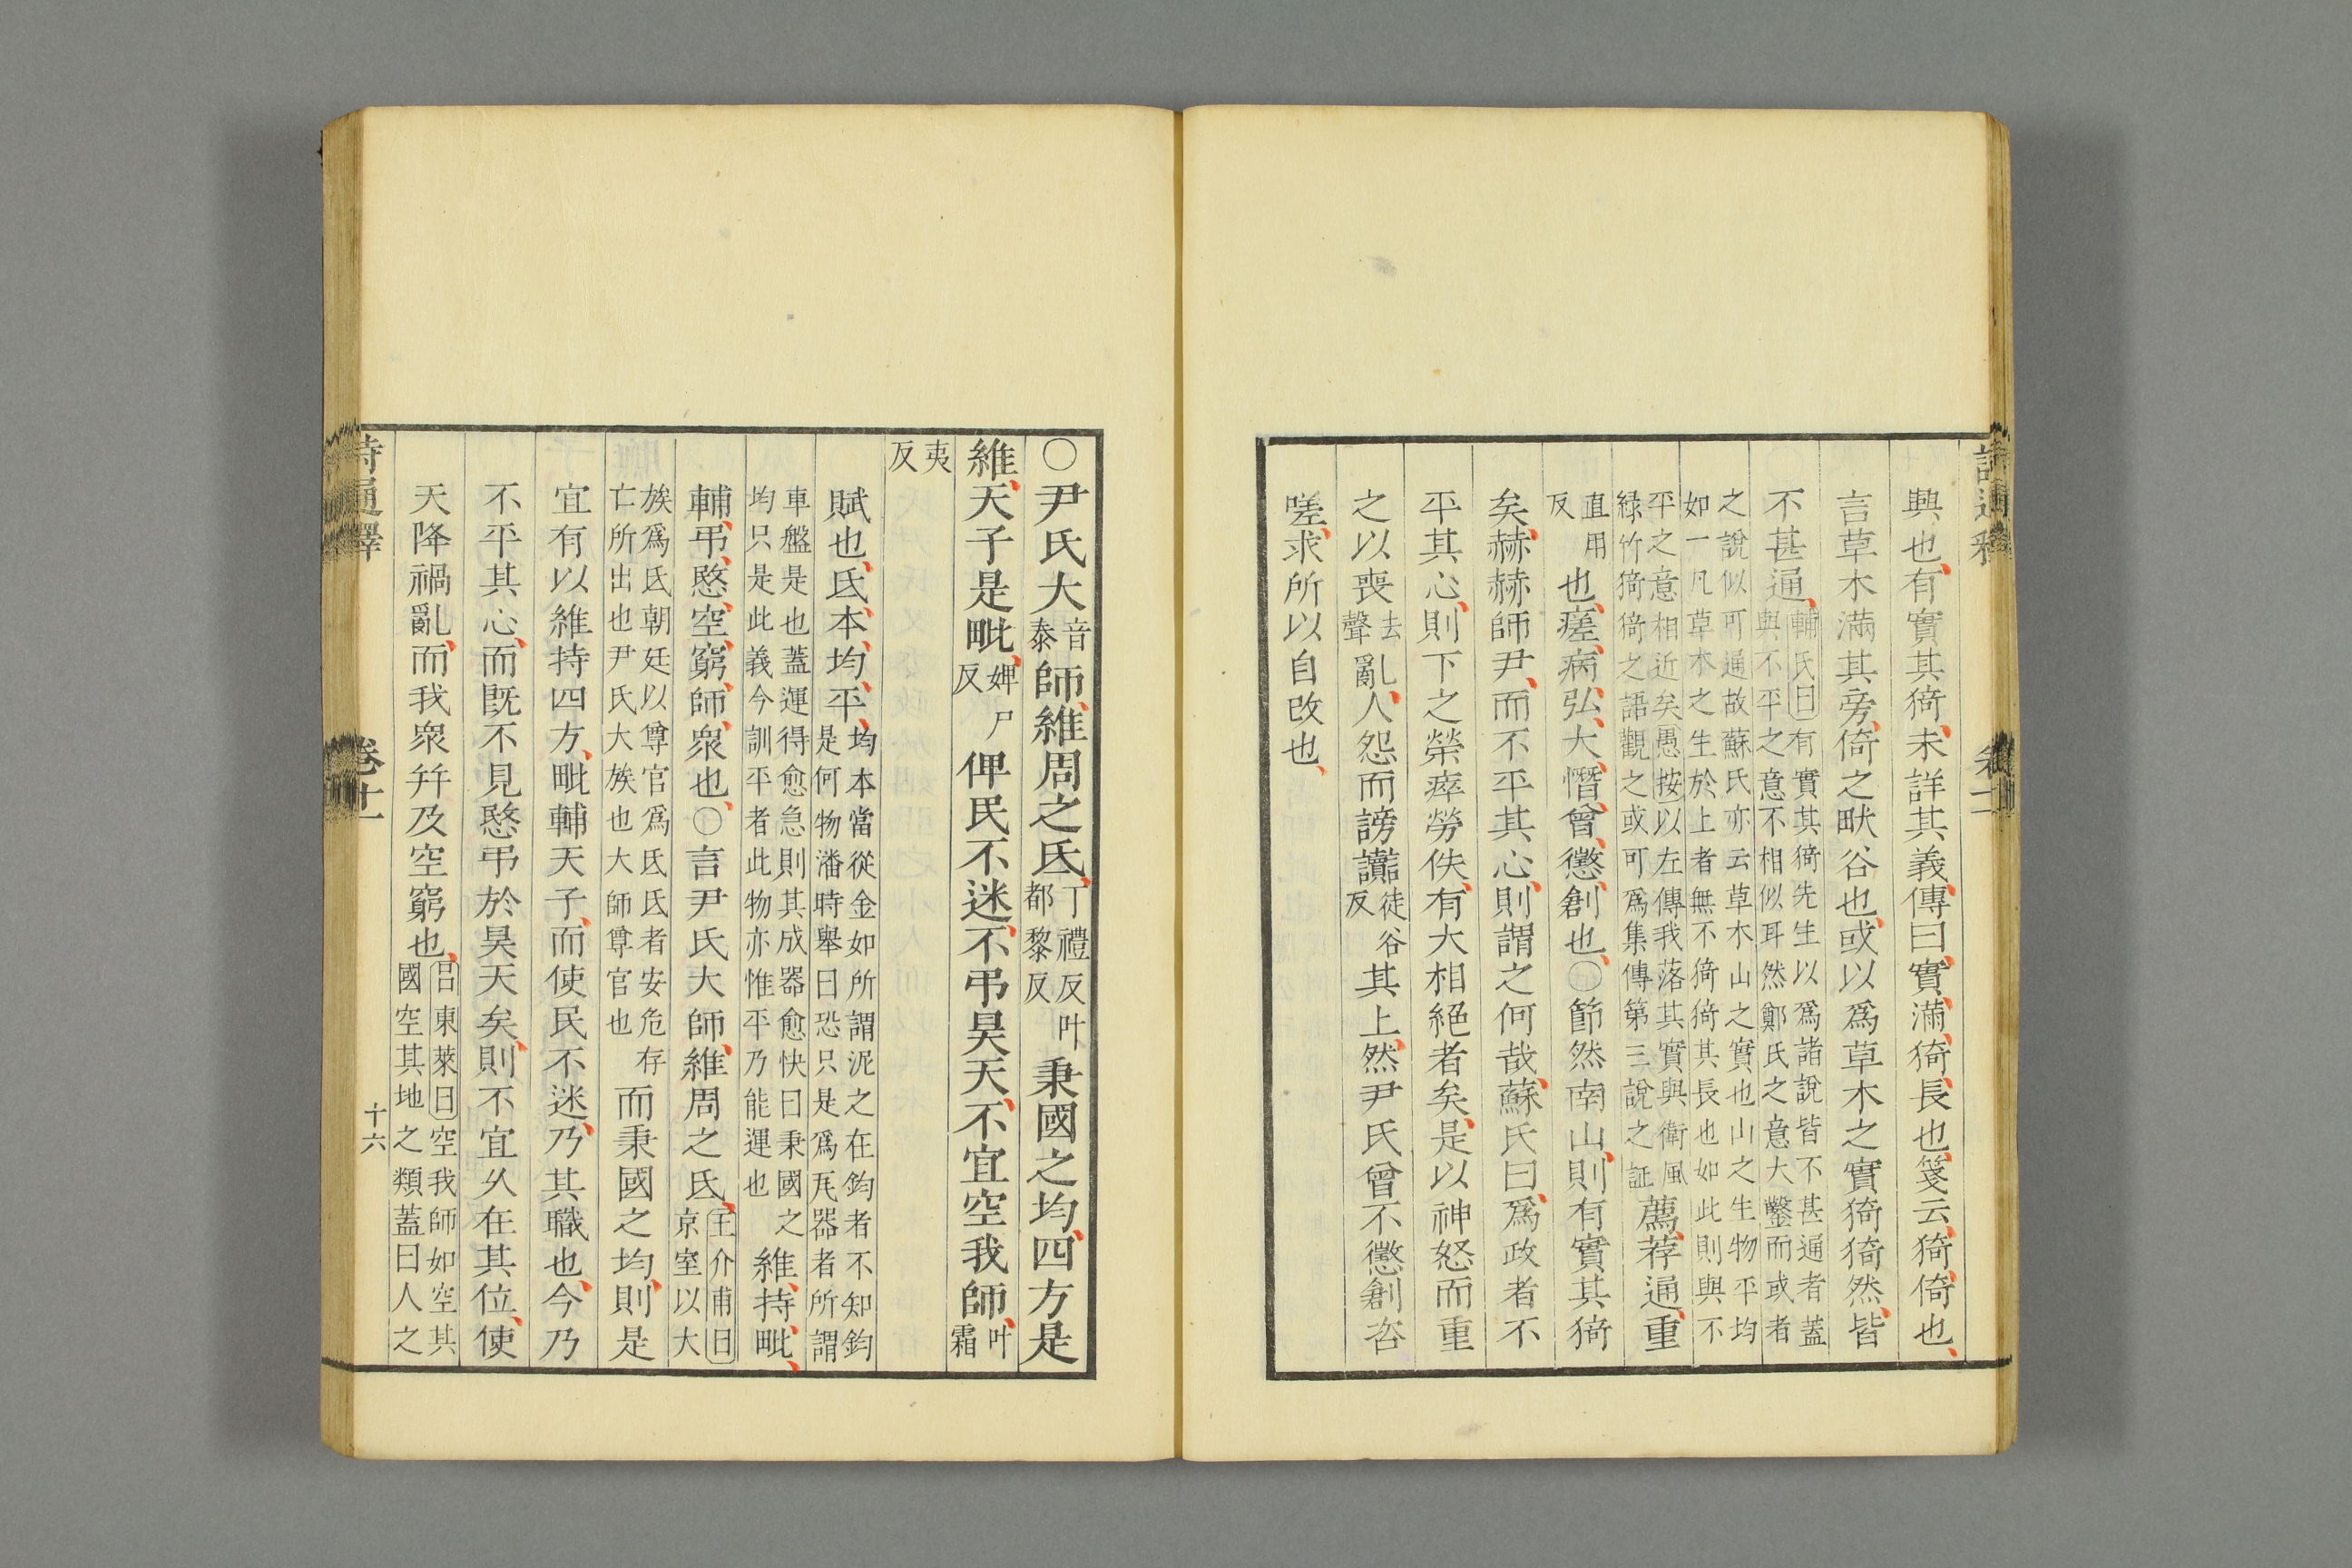 興也有實其猗未詳其義傳曰實滿猗長也箋云猗倚也
言草木滿其旁倚之畎谷也或以爲草木之實猗猗然皆
不甚通輔氏曰有實其猗先生以爲諸說皆不甚通者蓋
與不平之意不相似耳然鄭氏之意大鑿而或者
之說似可通故蘇氏亦云草木山之實也山之生物平均
如一凡草木之生於上者無不猗猗其長也如此則與不
平之意相近矣愚按以左傳我落其實與衛風
綠竹猗猗之語觀之或可爲集傳第三說之証薦荐通重
直用
反也瘥病弘大憯曾懲創也○節然南山則有實其猗
矣赫赫師尹而不平其心則謂之何哉蘇氏曰爲政者不
平其心則下之榮瘁勞佚有大相絕者矣是以神怒而重
之以喪去聲亂人怨而謗讟徒谷反其上然尹氏曾不懲創咨
嗟求所以自改也
○尹氏大音泰師維周之氐丁禮反叶都黎反秉國之均四方是
維天子是毗婢尸反俾民不迷不弔昊天不宜空我師叶霜
夷反
賦也氐本均平均本當從金如所謂泥之在鈞者不知鈞
是何物潘時舉曰恐只是爲瓦器者所謂
車盤是也蓋運得愈急則其成器愈快曰秉國之
均只是此義今訓平者此物亦惟平乃能運也維持毗
輔弔愍空窮師衆也○言尹氏大師維周之氐王介甫曰
京室以大
族爲氐朝廷以尊官爲氐氐者安危存
亡所出也尹氏大族也大師尊官也而秉國之均則是
宜有以維持四方毗輔天子而使民不迷乃其職也今乃
不平其心而旣不見愍弔於昊天矣則不宜久在其位使
天降禍亂而我衆幷及空窮也呂東萊曰空我師如空其
國空其地之類蓋曰人之
詩通釋 卷十一 十六